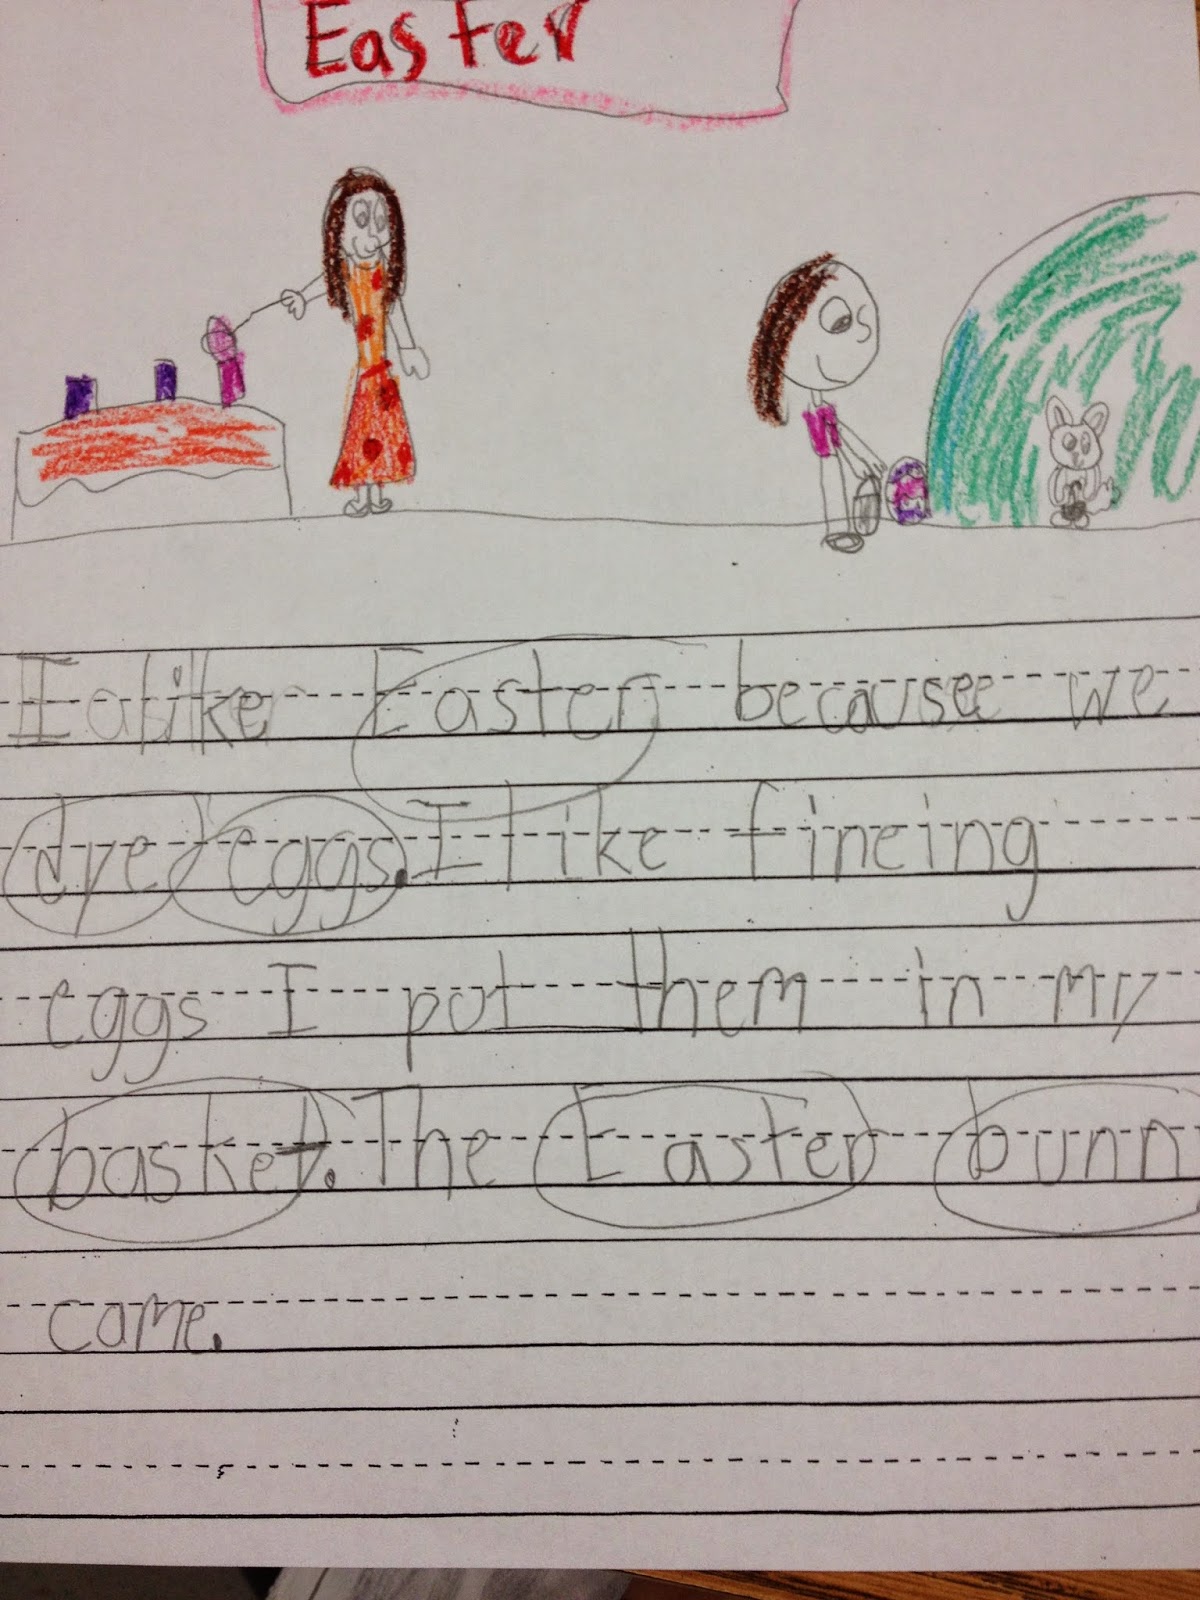 Easter
I like Easter because we
dye eggs. I like fineing
eggs I put them in my
basket. The Easter bunn
came.